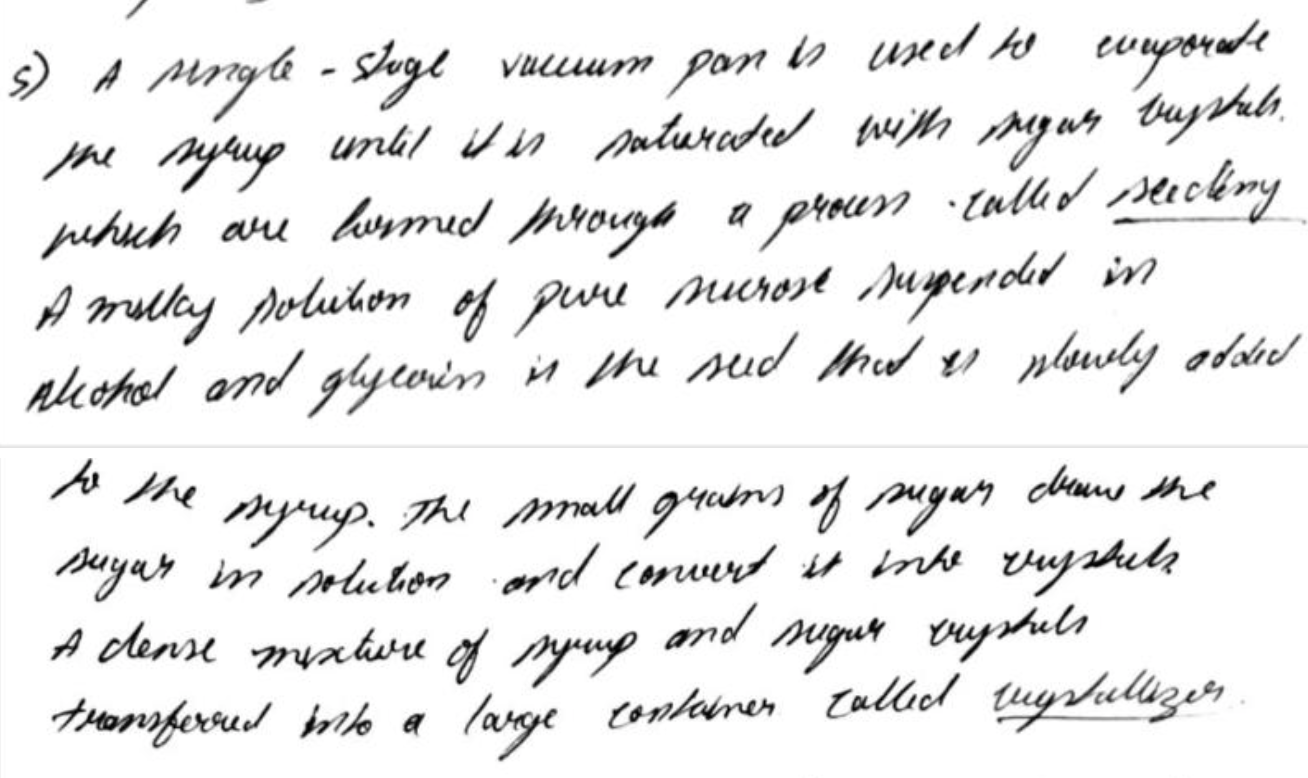 5) A single-stage vacuum pan is used to evaporate
the syrup until it is saturated with sugar crystals.
which are formed through a process called seeding
A milky solution of pure sucrose suspended in
Alcohol and glycerin is the seed that is slowly added
to the syrup. The small grains of sugar draw the
sugar in solution and convert it into crystals
A dense mixture of syrup and sugar crystals
transferred into a large container called crystallizer.